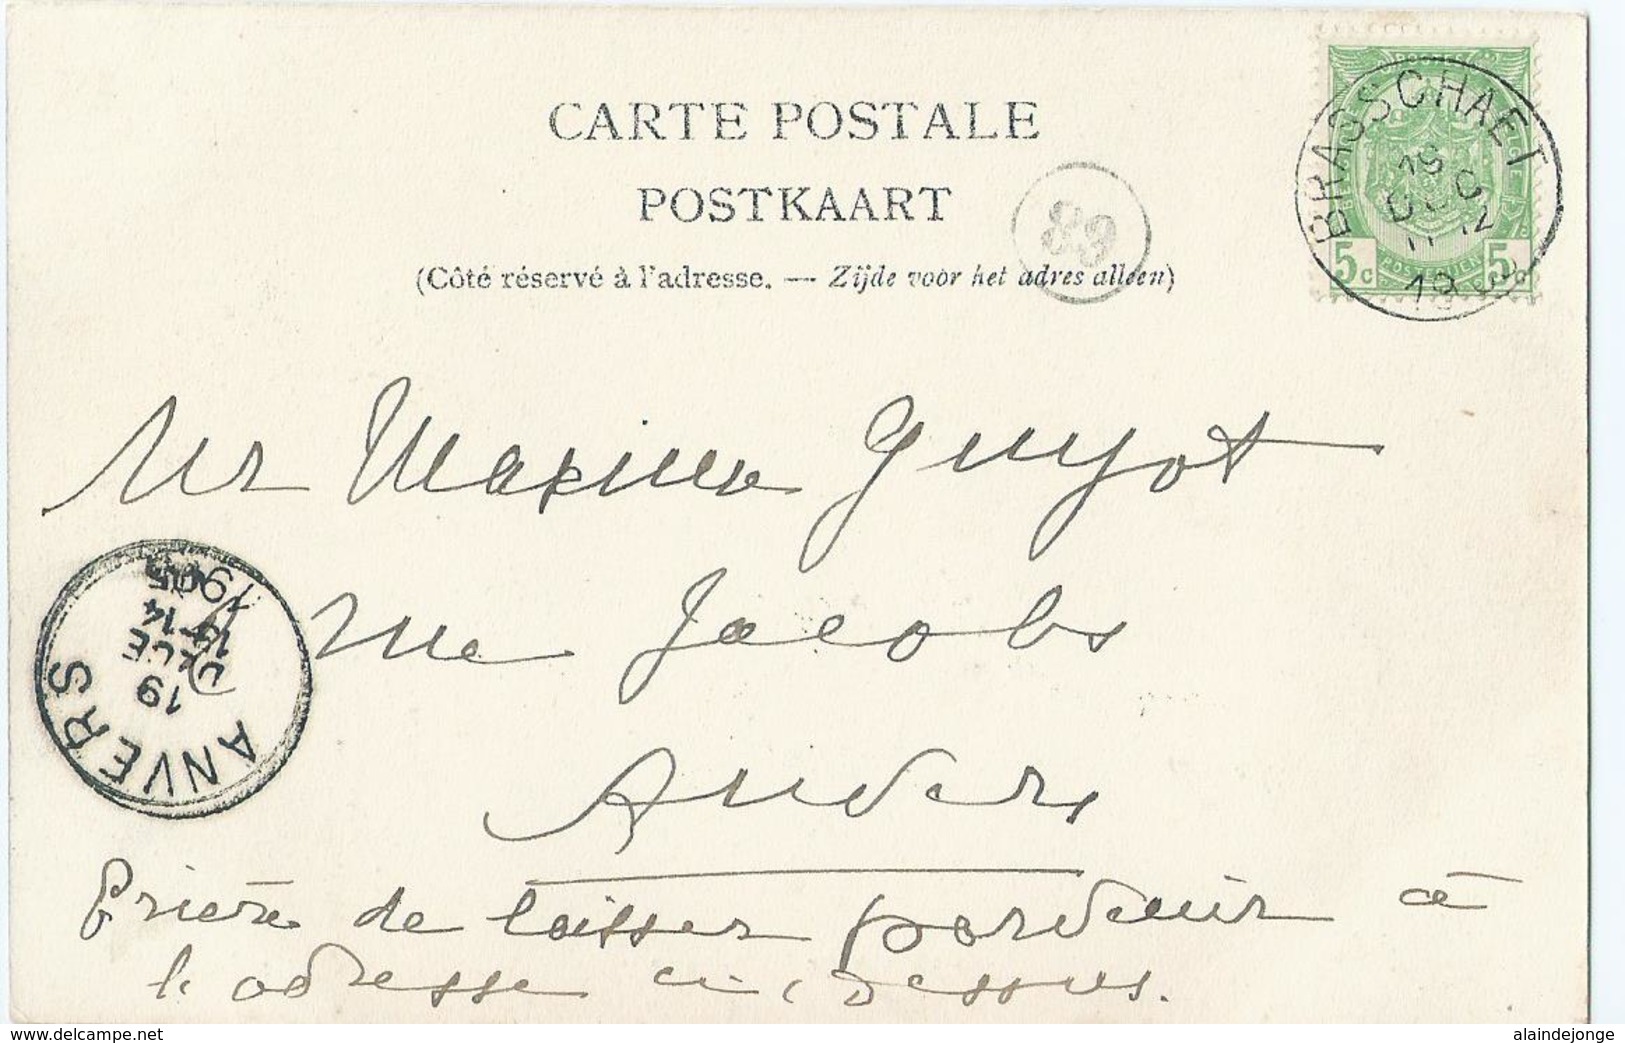 CARTE POSTALE
POSTKAART
(Côté réservé à l'adresse. — Zijde voor het adres alleen)
89
BRASSCHAET
5c POSTERIJEN 5c
Mr Maxime Guyot
rue Jacobs
Anvers
Prière de laisser parvenir à
l'adresse ci-dessus.
ANVERS
19
DECE
13-14
1905
www.delcampe.net
alaindejonge